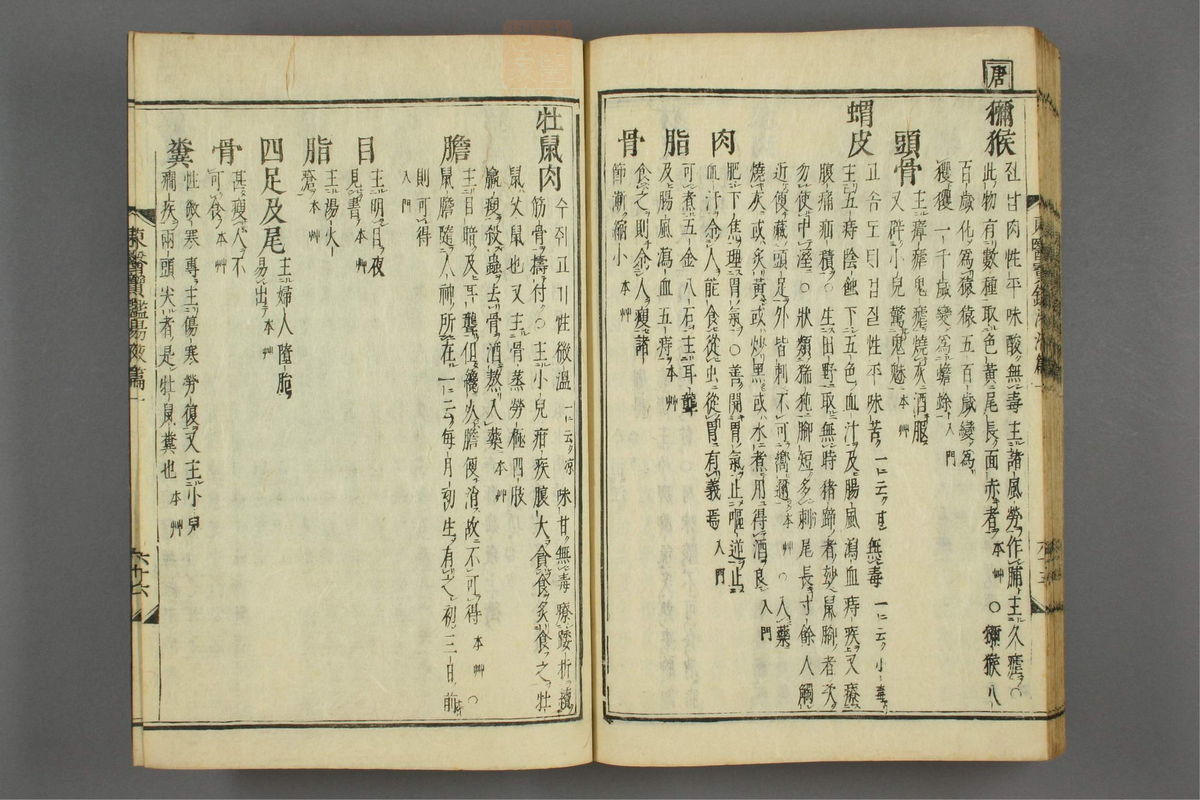 唐
獼猴
진납肉性平味酸無毒主諸風勞作脯主久瘧○
此物有數種取色黃尾長面赤者本艸○獼猴八
百歲化爲猿猿五百歲變爲
玃玃一千歲變爲蟾蜍入門
頭骨
主瘴瘧鬼瘧燒灰酒服
又辟小兒驚鬼魅本艸
蝟皮
고솜도티겁질性平味苦一云甘無毒一云小毒
主五痔陰蝕下五色血汁及腸風瀉血痔疾又療
腹痛疝積○生田野取無時猪蹄者妙鼠脚者次
勿使中濕○狀類猯㹠脚短多刺尾長寸餘人觸
近便藏頭足外皆刺不可嚮邇本艸○入藥
燒灰或炙黃或炒黑或水煮用得酒良入門
肉
肥下焦理胃氣○善開胃氣止嘔逆止
血汗令人能食從虫從胃有義焉入門
脂
可煮五金八石主耳聾
及腸風瀉血五痔本艸
骨
食之則令人瘦諸
節漸縮小本艸
牡鼠肉
수쥐고기性微溫一云凉味甘無毒療踒折續
筋骨擣付○主小兒疳疾腹大貪食炙食之牡
鼠父鼠也又主骨蒸勞極四肢
羸瘦殺蟲去骨酒熬入藥本艸
膽
主目暗及耳聾但纔死膽便消故不可得本艸○
鼠膽隨人神所在一云每月初生有之初三日前
則可得
入門
目
主明目夜
見書本艸
脂
主湯火
瘡本艸
四足及尾
主婦人墮胎
易出本艸
骨
甚瘦人不
可食本艸
糞
性微寒專主傷寒勞復又主小兒
癎疾兩頭尖者是牡鼠糞也本艸
東醫寶鑑湯液篇一
六十六